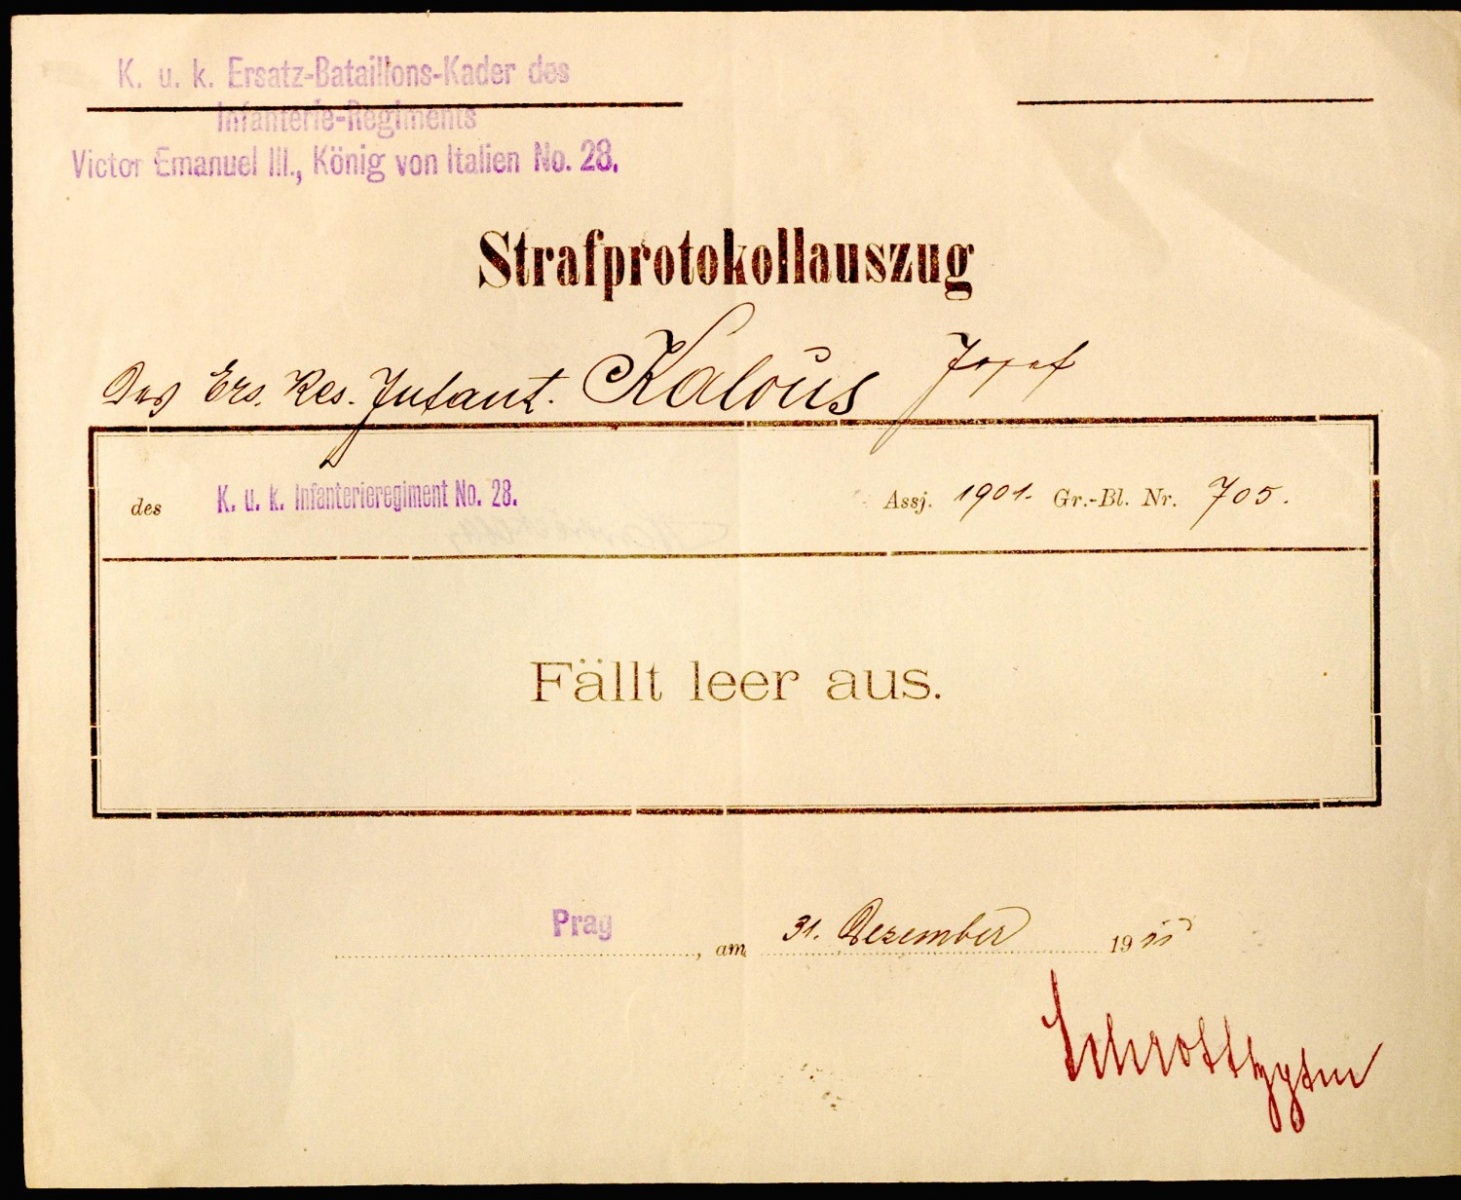 K. u. k. Ersatz-Bataillons-Kader des
Infanterie-Regiments
Victor Emanuel III., König von Italien No. 28.
Strafprotokollauszug
Des Ers. Res. Infant. Kalous Josef
des K. u. k. Infanterieregiment No. 28. Assj. 1901. Gr.-Bl. Nr. 705.
Fällt leer aus.
Prag, am 31. Dezember 1911